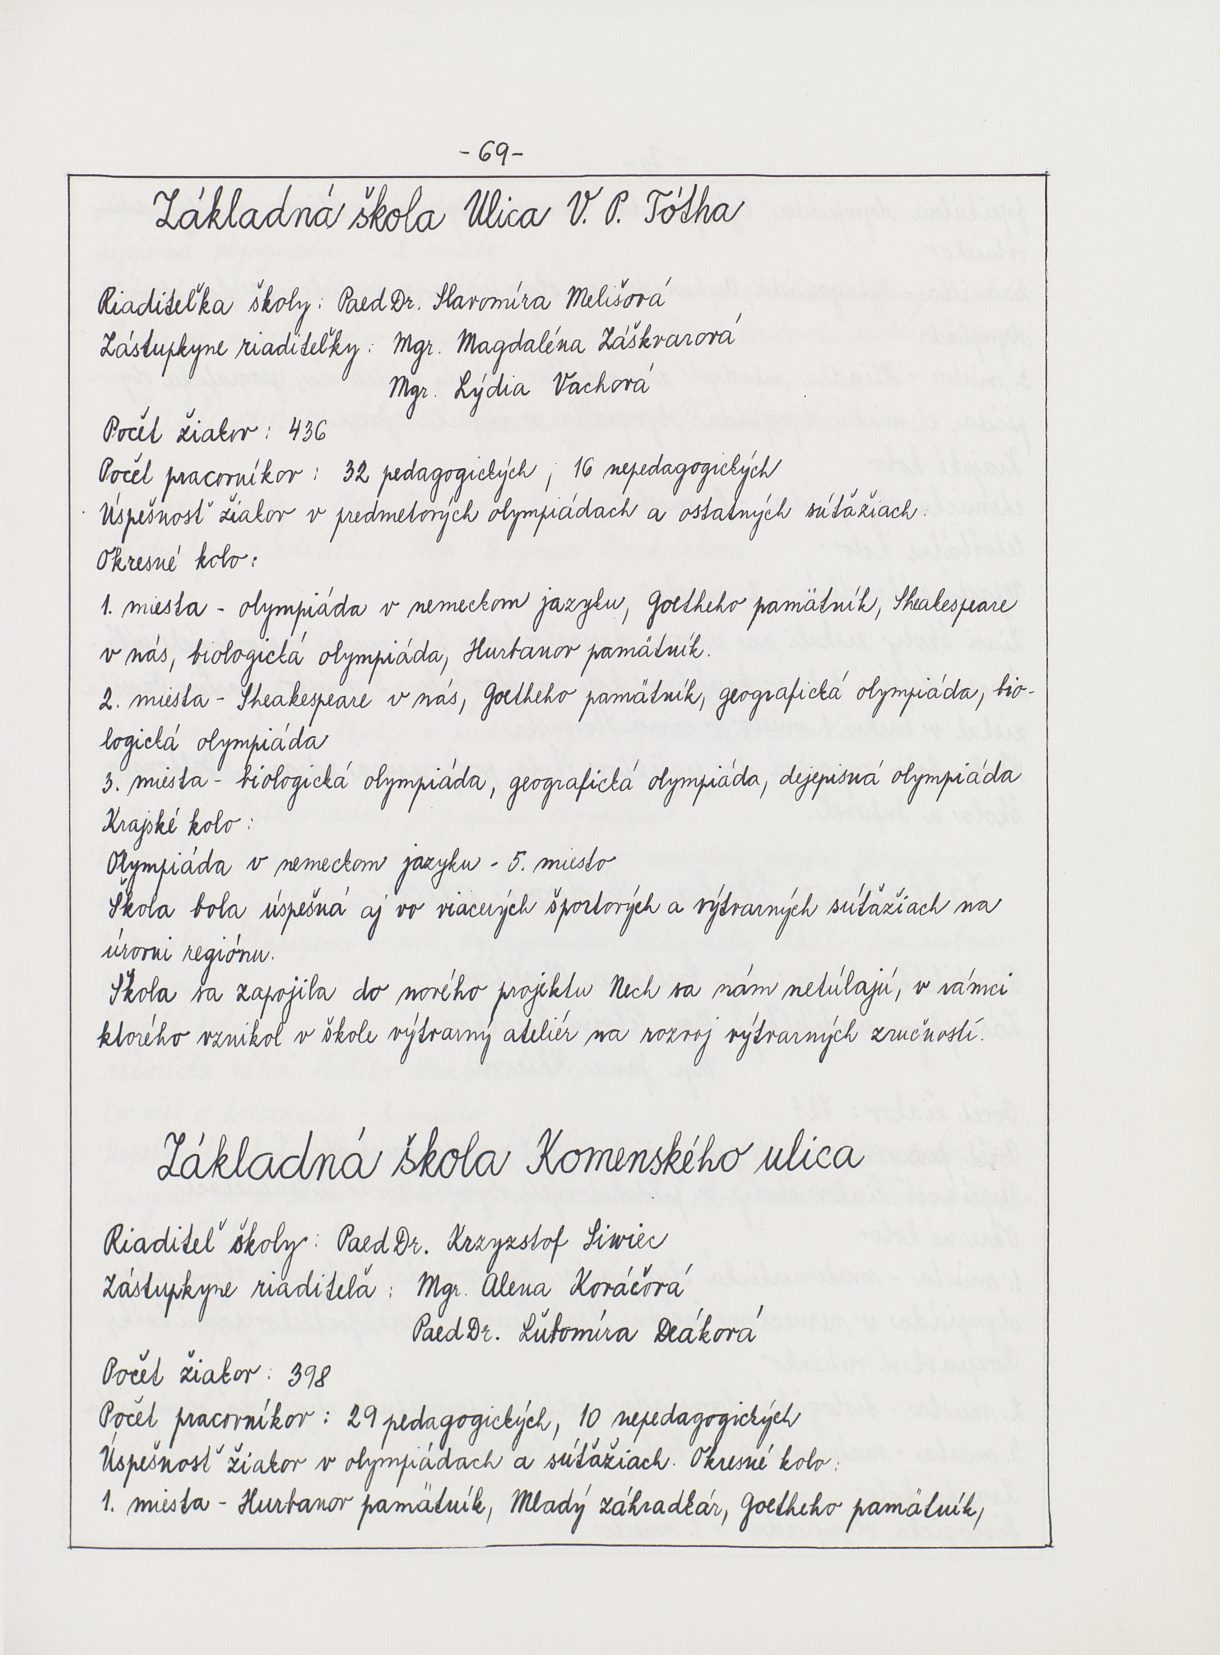 -69-
Základná škola Ulica V. P. Tótha
Riaditeľka školy: PaedDr. Slavomíra Melišová
Zástupkyne riaditeľky: Mgr. Magdaléna Záškvarová
Mgr. Lýdia Vachová
Počet žiakov: 436
Počet pracovníkov: 32 pedagogických, 16 nepedagogických
Úspešnosť žiakov v predmetových olympiádach a ostatných súťažiach.
Okresné kolo:
1. miesta - olympiáda v nemeckom jazyku, Goetheho pamätník, Sheakespeare
v nás, biologická olympiáda, Hurbanov pamätník.
2. miesta - Sheakespeare v nás, Goetheho pamätník, geografická olympiáda, bio-
logická olympiáda
3. miesta - biologická olympiáda, geografická olympiáda, dejepisná olympiáda
Krajské kolo:
Olympiáda v nemeckom jazyku - 5. miesto
Škola bola úspešná aj vo viacerých športových a výtvarných súťažiach na
úrovni regiónu.
Škola sa zapojila do nového projektu Nech sa nám netúlajú, v rámci
ktorého vznikol v škole výtvarný ateliér na rozvoj výtvarných zručností.
Základná škola Komenského ulica
Riaditeľ školy: PaedDr. Krzyzstof Siwiec
Zástupkyne riaditeľa: Mgr. Alena Kováčová
PaedDr. Ľubomíra Deáková
Počet žiakov: 398
Počet pracovníkov: 29 pedagogických, 10 nepedagogických
Úspešnosť žiakov v olympiádach a súťažiach. Okresné kolo:
1. miesta - Hurbanov pamätník, Mladý záhradkár, Goetheho pamätník,